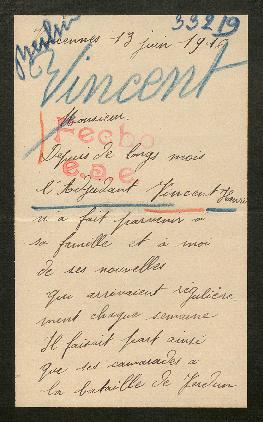 33219
Vincennes - 13 juin - 191
Vincent
Monsieur.
Recho
Depuis de longs mois
e.a.e
l'Adjudant Vincent Henri
n'a fait parvenir à
sa famille et à moi
de ses nouvelles
qui arrivaient régulière
ment chaque semaine
Il faisait part ainsi
que ses camarades à
la bataille de Verdun